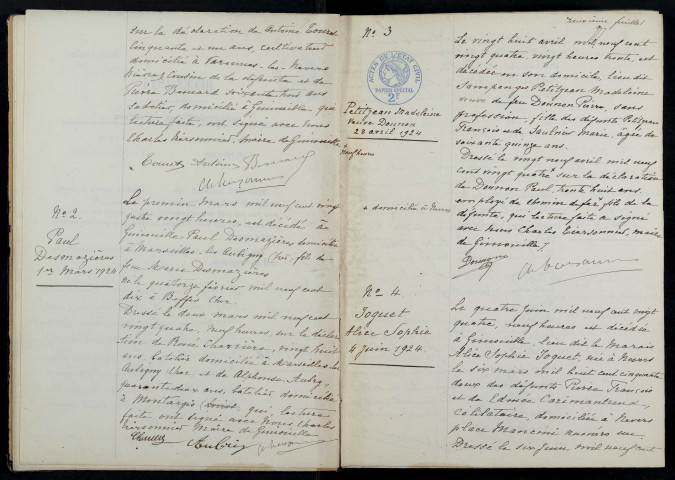 sur la déclaration de Antoine Touret
cinquante et un ans, cultivateur
domicilié à Varennes-les-Nevers
cousin de la défunte et de
Pierre Bonnard soixante trois ans
sabotier, domicilié à Gimouille, qui
lecture faite, ont signé avec nous
Charles Tiersonnier, Maire de Gimouille
No 2.
Paul
Desmazières
1er Mars 1924
Le premier Mars mil neuf cent vingt
quatre vingt heures, est décédé à
Gimouille Paul Desmazières domicilié
à Marseilles-les-Aubigny Cher, fils de
feu Marie Desmazières
né le quatorze février mil neuf cent
dix à Beffes Cher.
Dressé le deux mars mil neuf cent
vingt quatre, neuf heures sur la déclara
tion de René Charrière, vingt huit
ans, batelier domicilié à Marseilles-les-
Aubigny Cher et de Alphonse Aubry,
quarante deux ans, batelier, domicilié
à Montargis Loiret, qui, lecture
faite ont signé avec Nous Charles
Tiersonnier Maire de Gimouille
Aubry
deuxième feuillet
No 3
ACTES DE L'ETAT CIVIL
PAPIER SPECIAL
2F
Petitjean Madeleine
Veuve Donnon
28 avril 1924
+ neuf heures
+ domicilié à Nevers
Le vingt huit avril mil neuf cent
vingt quatre, vingt heures trente, est
décédée en son domicile, lieu dit
Sampanges Petitjean Madeleine
veuve de feu Donnon Pierre, sans
profession, fille des défunts Petitjean
François et de Saulnier Marie, âgée de
soixante quinze ans.
Dressé le vingt neuf avril mil neuf
cent vingt quatre + sur la déclaration
de Donnon Paul, trente huit ans,
employé de chemin de fer + fils de la
défunte, qui lecture faite a signé
avec nous Charles Tiersonnier, maire
de Gimouille.
No 4
Joquet
Alice Sophie
4 Juin 1924.
Le quatre Juin mil neuf cent vingt
quatre, neuf heures est décédée
à Gimouille, lieu dit le Marais
Alice Sophie Joquet, née à Nevers
le six mars mil huit cent cinquante
deux des défunts Pierre François
et de Edmée Carimantrand,
célibataire, domiciliée à Nevers
place Mancini numéro un.
Dressé le six Juin mil neuf cent